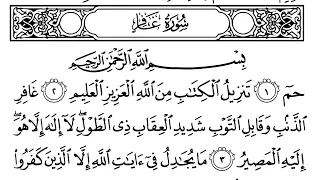 سُورَةُ غَافِرٍ
بِسْمِ ٱللَّهِ ٱلرَّحْمَٰنِ ٱلرَّحِيمِ
حمٓ ۝١ تَنزِيلُ ٱلْكِتَٰبِ مِنَ ٱللَّهِ ٱلْعَزِيزِ ٱلْعَلِيمِ ۝٢ غَافِرِ
ٱلذَّنۢبِ وَقَابِلِ ٱلتَّوْبِ شَدِيدِ ٱلْعِقَابِ ذِى ٱلطَّوْلِ ۖ لَآ إِلَٰهَ إِلَّا هُوَ ۖ
إِلَيْهِ ٱلْمَصِيرُ ۝٣ مَا يُجَٰدِلُ فِىٓ ءَايَٰتِ ٱللَّهِ إِلَّا ٱلَّذِينَ كَفَرُوا۟